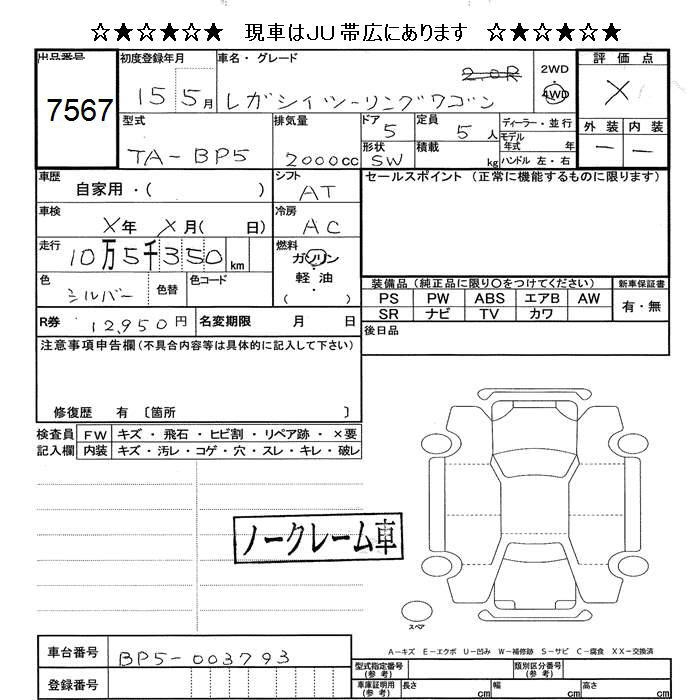 ☆★☆★☆★ 現車はJU帯広にあります ☆★☆★☆★
出品番号 7567
初度登録年月 15 5月
車名・グレード レガシィツーリングワゴン 2.0R
2WD
4WD
評価点 X
外装 内装
― ―
型式 TA-BP5
排気量 2000cc
ドア 5
定員 5人
形状 SW
積載 kg
ディーラー・並行
モデル年式 年
ハンドル 左・右
車歴 自家用・( )
シフト AT
セールスポイント (正常に機能するものに限ります)
車検 X年 X月( 日)
冷房 AC
走行 10万5千350km
燃料 ガソリン
軽油
( )
色 シルバー 色替 色コード
装備品(純正品に限り○をつけてください) 新車保証書
PS PW ABS エアB AW 有・無
SR ナビ TV カワ
R券 12,950円 名変期限 月 日
後日品
注意事項申告欄(不具合内容等は具体的に記入して下さい)
修復歴 有 〔箇所 〕
検査員 FW キズ・飛石・ヒビ割・リペア跡・×要
記入欄 内装 キズ・汚レ・コゲ・穴・スレ・キレ・破レ
ノークレーム車
スペア
A-キズ E-エクボ U-凹み W-補修跡 S-サビ C-腐食 XX-交換済
車台番号 BP5-003793
型式指定番号(参考) 類別区分番号(参考)
登録番号
車庫証明用(参考) 長さ cm 幅 cm 高さ cm